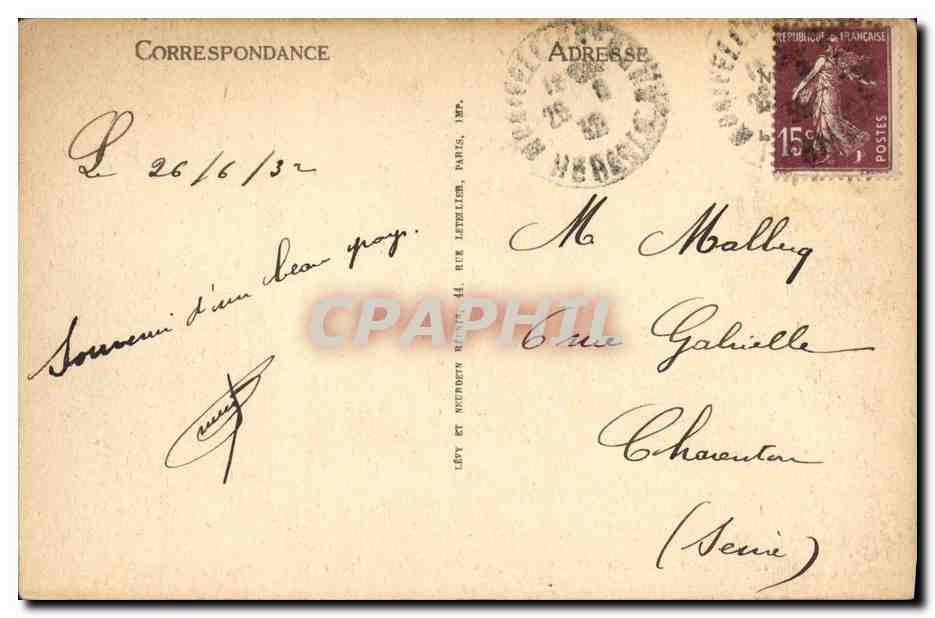 CORRESPONDANCE
ADRESSE
RÉPUBLIQUE FRANÇAISE
15c
POSTES
Le 26/6/32
Souvenir d'un beau pays.
LÉVY ET NEURDEIN RÉUNIS, 44, RUE LETELLIER, PARIS, IMP.
CPAPHIL
M Malberg
6 rue Gabrielle
Charenton
(Seine)